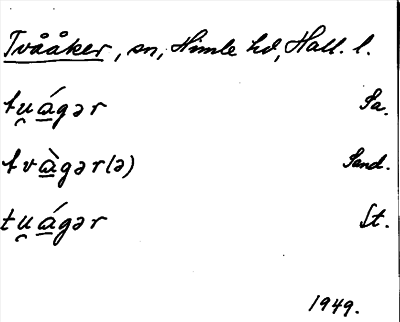 Tvååker, sn, Himle hd, Hall. l.
tu̯á̲gər Sa.
tvà̲gər(ə) Sand.
tu̯á̲gər St.
1949.